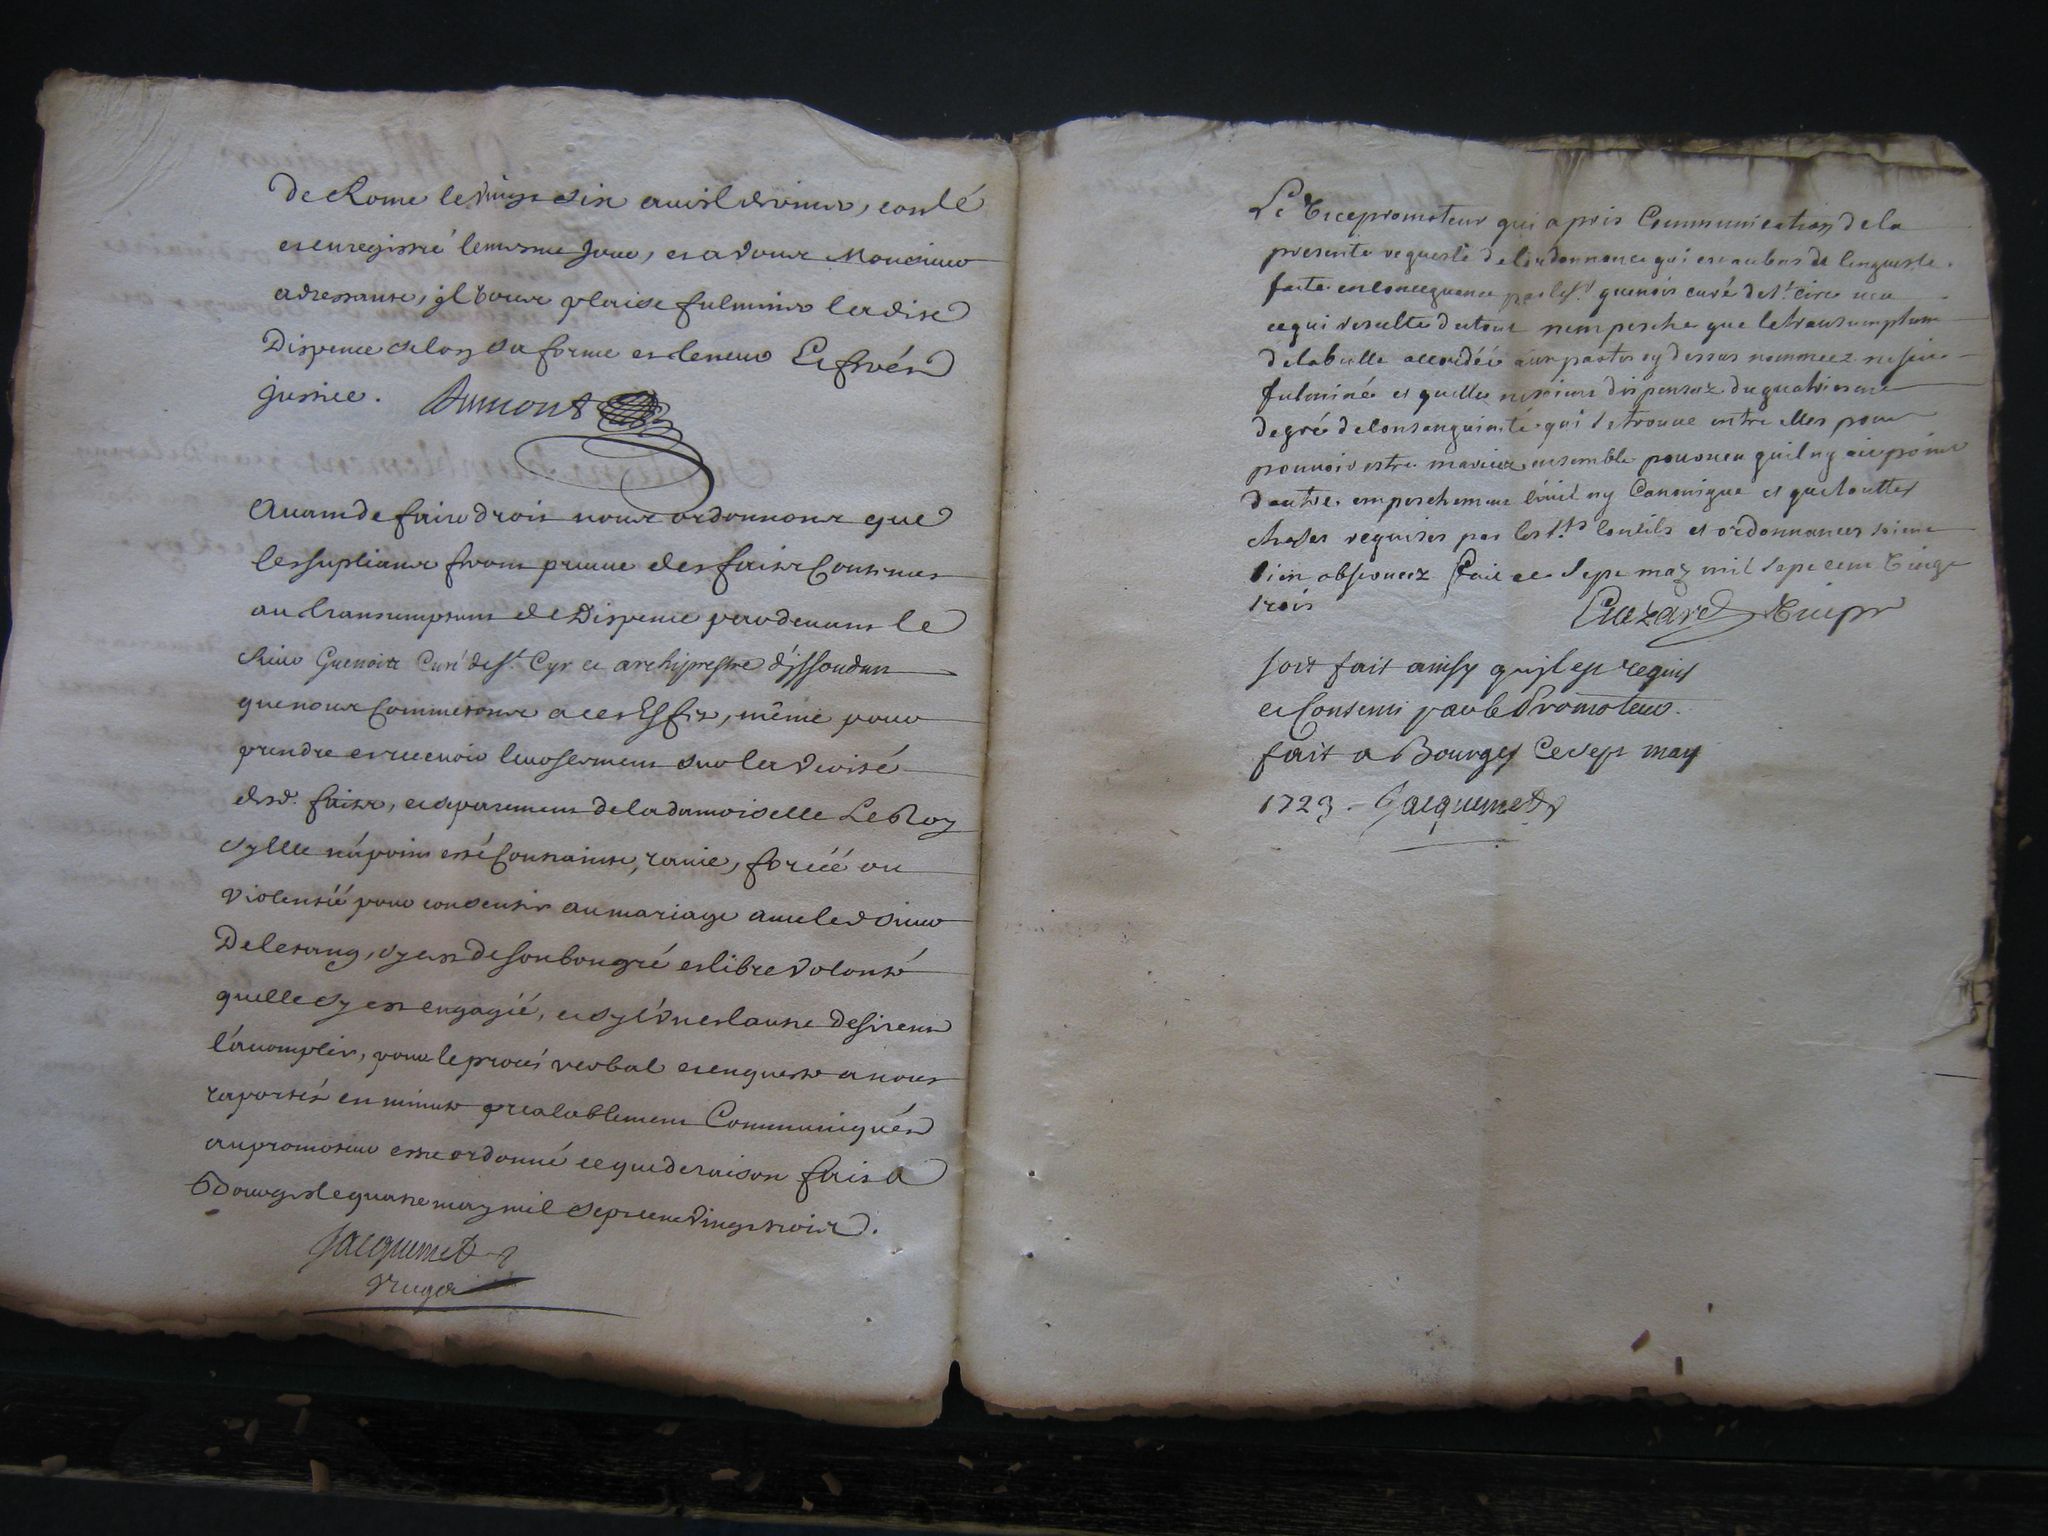 de Rome le vingt six avril dernier, contlé
et enregistré le mesme jour, et a vous Monsieur
adressante, il vous plaise fulminer ladite
Dispence selon sa forme et teneur Et ferés
justice. Aumont
Avant de faire droit nous ordonnons que
les supliants feront preuve des faits Contenus
au transumptum de Dispence pardevant le
sieur Guenois Curé de St. Cyr et archiprestre d'issoudun
que nous Commetons a cet Effet, même pour
prendre et recevoir leur serment sur la verité
desd. faits, et separement de la damoiselle Le Roy
sy elle n'a point esté Contrainte, ravie, forcée ou
violentée pour consentir au mariage avec led sieur
Deletang, sy c'est de son bon gré et libre volonté
quelle sy est engagée, et sy l'un et lautre desirent
l'acomplir, pour le procés verbal et enqueste a nous
raportés en minute prealablement Communiqués
au promoteur estre ordonné ce que de raison fait a
Bourges le quatre may mil sept cent vingt trois.
Jacquemet
Le Vicepromoteur qui a pris Communication de la
presente requeste de lordonnance qui est au bas de lenqueste
faite en consequence par le sr. guenois curé de st. Cire veu
ce qui resulte du tout nempesche que le transumptum
de la bulle accordée aux parties cy dessus nommeez ne soit
fulminée et quelles ne soient dispensez du quatriesme
degré de Consanguinité qui se trouve entre elles pour
pouvoir estre mariez ensemble pourveu quil ny ait point
dautre empeschement Civil ny Canonique et que touttes
choses requises par les sts. Concils et ordonnances soient
bien observeez Fait ce sept may mil sept cent vingt
trois
soit fait ainsy qu'il est requis
et Consenti par le Promoteur.
fait a Bourges Ce sept may
1723. Jacquemet